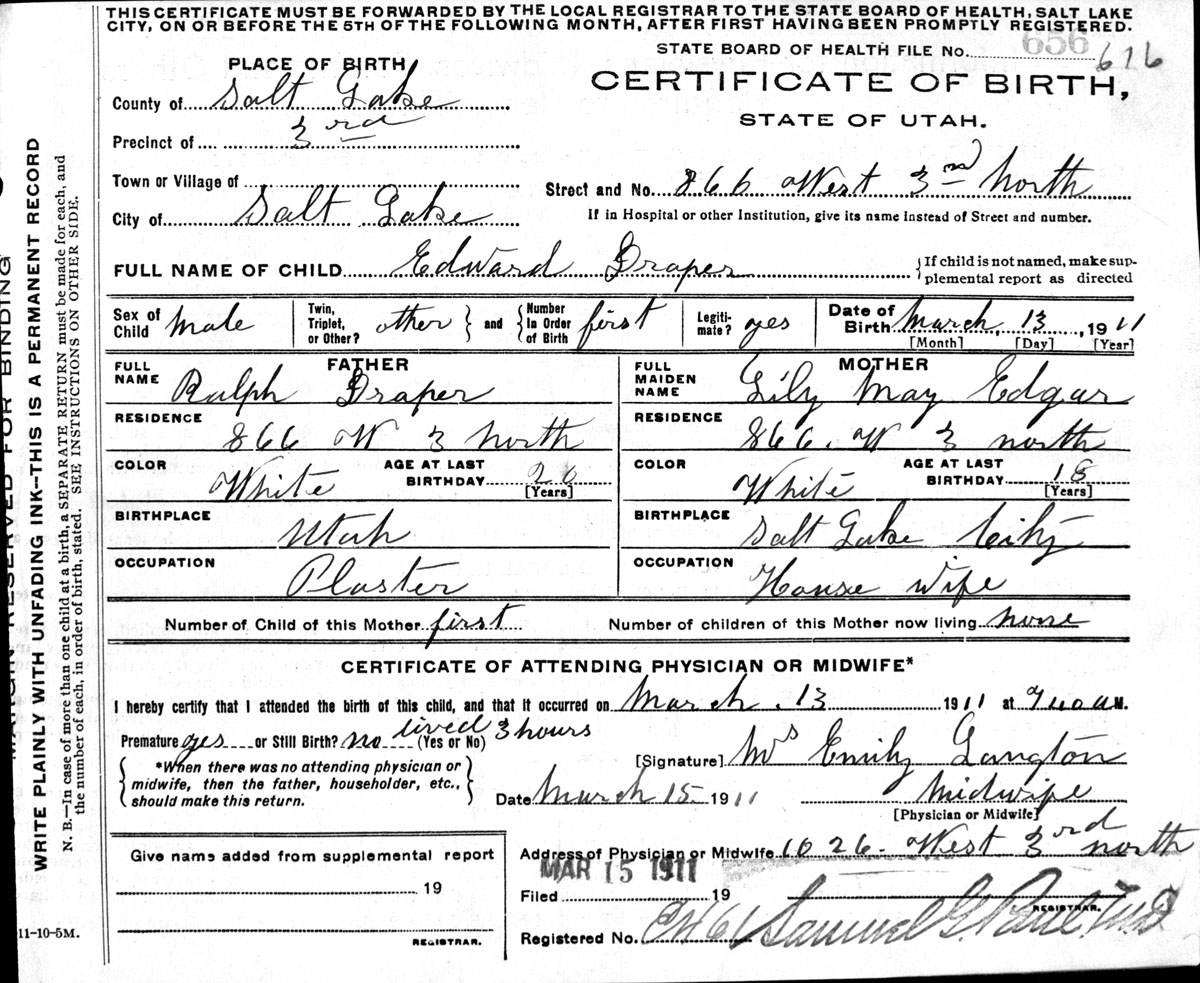 THIS CERTIFICATE MUST BE FORWARDED BY THE LOCAL REGISTRAR TO THE STATE BOARD OF HEALTH, SALT LAKE
CITY, ON OR BEFORE THE 5TH OF THE FOLLOWING MONTH, AFTER FIRST HAVING BEEN PROMPTLY REGISTERED.
STATE BOARD OF HEALTH FILE No. 656 616
PLACE OF BIRTH
CERTIFICATE OF BIRTH,
STATE OF UTAH.
County of Salt Lake
Precinct of 3rd
Town or Village of
Street and No. 866 West 3rd North
City of Salt Lake
If in Hospital or other Institution, give its name instead of Street and number.
FULL NAME OF CHILD Edward Draper
{If child is not named, make sup-
plemental report as directed
Sex of Child Male
Twin, Triplet, or Other? other } and { Number In Order of Birth first
Legiti-mate? yes
Date of Birth March, 13, 1911
[Month] [Day] [Year]
FATHER
FULL NAME Ralph Draper
MOTHER
FULL MAIDEN NAME Lily May Edgar
RESIDENCE 866 W 3 North
RESIDENCE 866. W 3 north
COLOR White AGE AT LAST BIRTHDAY 20 [Years]
COLOR White AGE AT LAST BIRTHDAY 18 [Years]
BIRTHPLACE Utah
BIRTHPLACE Salt Lake City
OCCUPATION Plaster
OCCUPATION House wife
Number of Child of this Mother first Number of children of this Mother now living none
CERTIFICATE OF ATTENDING PHYSICIAN OR MIDWIFE*
I hereby certify that I attended the birth of this child, and that it occurred on March. 13 1911 at 740 a M.
Premature yes or Still Birth? no (Yes or No) lived 3 hours
*When there was no attending physician or
midwife, then the father, householder, etc.,
should make this return.
[Signature] Mrs Emily Langton
Date March 15 1911 Midwife
[Physician or Midwife]
Give name added from supplemental report
19
REGISTRAR.
Address of Physician or Midwife 1026. West 3rd north
MAR 15 1911
Filed 19
REGISTRAR.
Registered No. Samuel G. Paul M.D.
11-10-5M.
MARGIN RESERVED FOR BINDING
WRITE PLAINLY WITH UNFADING INK—THIS IS A PERMANENT RECORD
N. B.—In case of more than one child at a birth, a SEPARATE RETURN must be made for each, and
the number of each, in order of birth, stated. SEE INSTRUCTIONS ON OTHER SIDE.